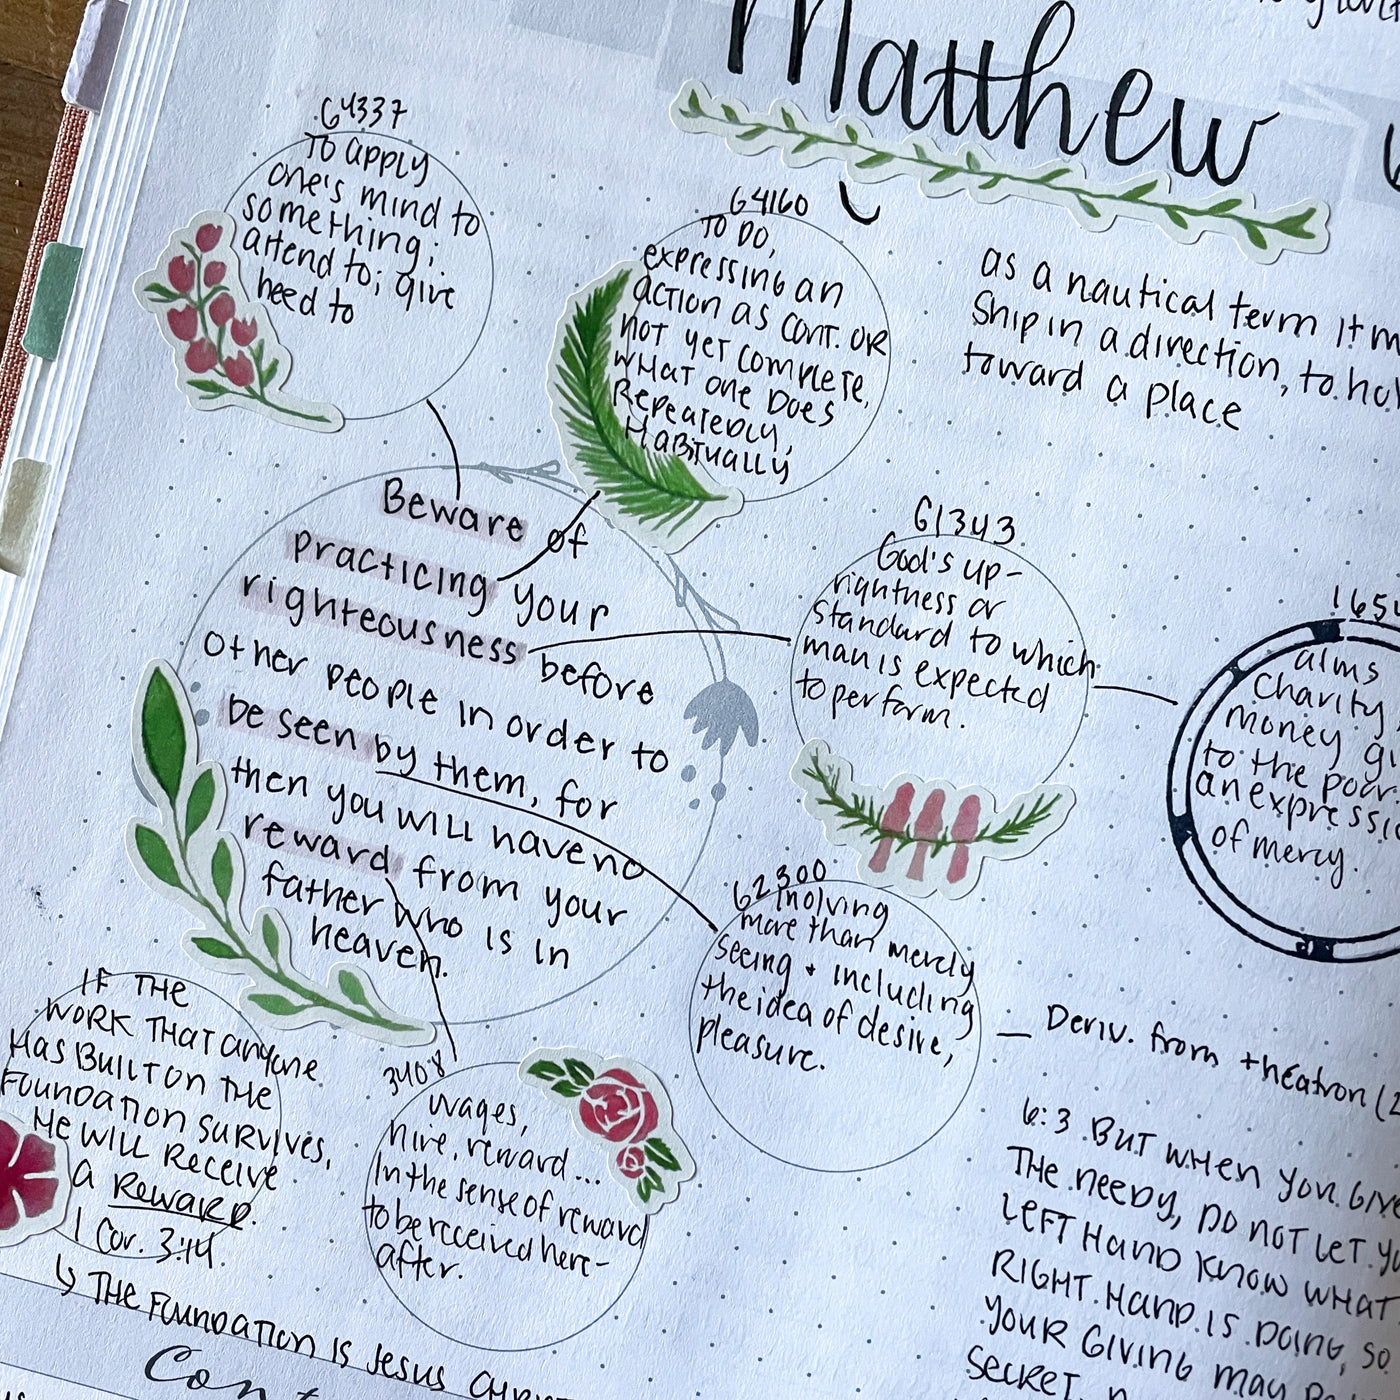 Matthew
G4337
To apply
one's mind to
something;
attend to; give
heed to
G4160
TO DO,
expressing an
action as cont. OR
not yet complete,
what one Does
Repeatedly,
Habitually
as a nautical term it
Ship in a direction, to
toward a place
Beware of
practicing your
righteousness before
other people in order to
be seen by them, for
then you will have no
reward from your
father who is in
heaven.
G1343
God's up-
rightness or
standard to which
man is expected
to perform.
alms
Charity
money
to the poor.
an
of mercy.
G2300
Inolving
more than merely
seeing + including
the idea of desire,
pleasure.
Deriv. from theatron
3408
Wages,
hire, reward...
In the sense of reward
to be received here-
after.
IF THE
WORK THAT anyone
Has Built on the
Foundation survives,
He will Receive
a Reward.
1 Cor. 3:14.
↳ THE Foundation is Jesus
6:3 But when you
THE needy, Do not let
Left Hand know what
Right Hand is Doing, so
your giving may
secret.